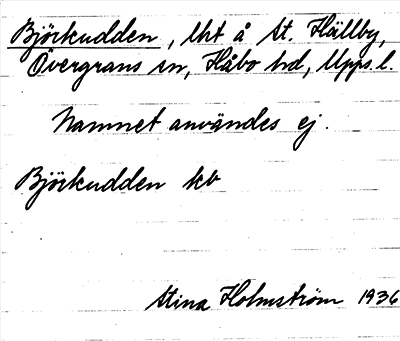 Björkudden, lht å St. Hällby,
Övergrans sn, Håbo hd, Upps.l.
Namnet användes ej.
Björkudden kb
Stina Holmström 1936